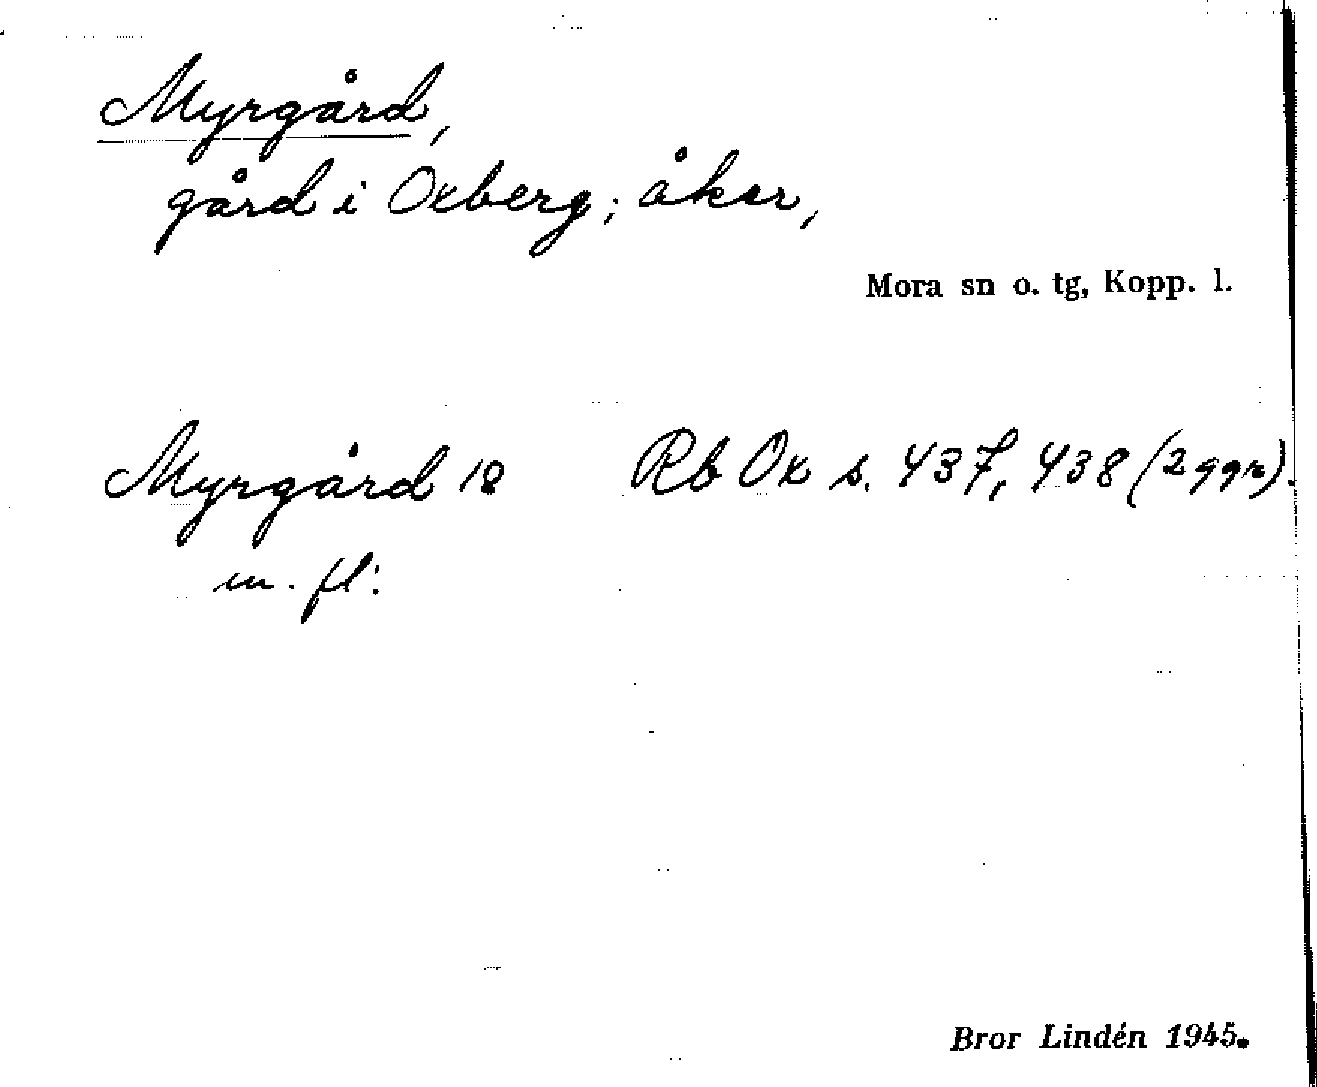 Myrgård,
gård i Oxberg; åker,
Mora sn o. tg, Kopp. l.
Myrgård 18 Rb Ox s. 437, 438 (2 ggr).
m. fl.
Bror Lindén 1945.